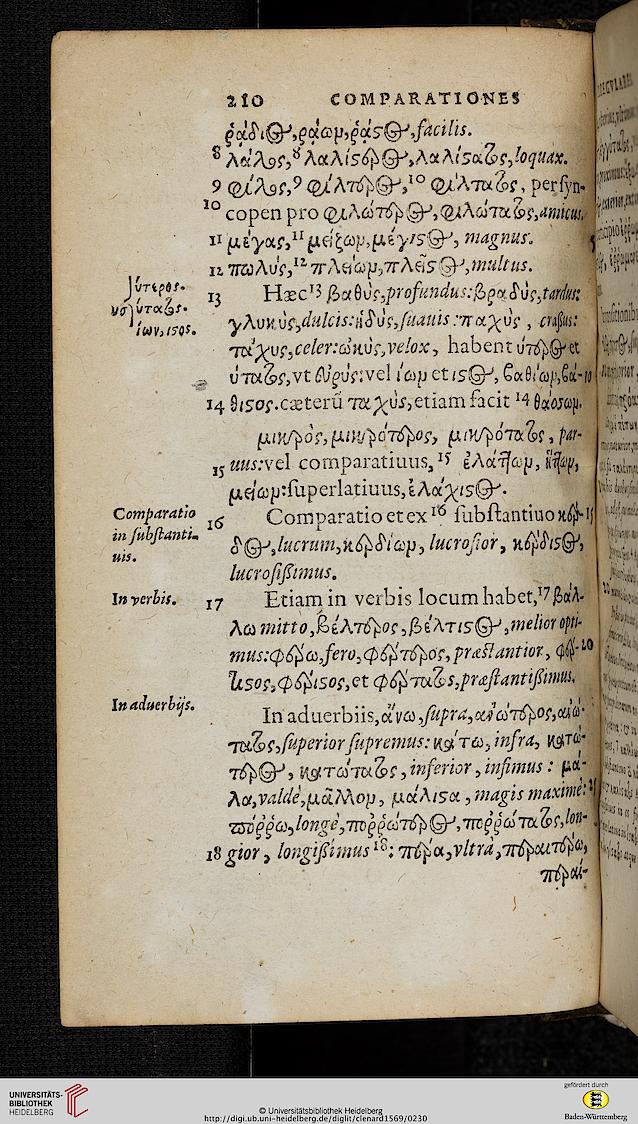 210 COMPARATIONES
ῥάδιος, ῥάων, ῥᾶστος, facilis.
8 λάλος, 8 λαλίστερος, λαλίστατος, loquax.
9 φίλος, 9 φίλτερος, 10 φίλτατος, per syn-
10 copen pro φιλώτερος, φιλώτατος, amicus.
11 μέγας, 11 μείζων, μέγιστος, magnus.
12 πολὺς, 12 πλείων, πλεῖστος, multus.
υς ύτερος.
ύτατος.
ίων, ιστος.
13 Hæc 13 βαθὺς, profundus: βραδὺς, tardus:
γλυκὺς, dulcis: ἡδὺς, suauis: παχὺς, craßus:
ταχὺς, celer: ὠκὺς, velox, habent ύτερος et
ύτατος, vt εὐρύς: vel ίων et ιστος, βαθίων, βά- 10
14 θιστος. cæterũ ταχὺς, etiam facit 14 θάσσων.
μικρὸς, μικρότερος, μικρότατος, par-
15 uus: vel comparatiuus, 15 ἐλάττων, ἥττων,
μείων: superlatiuus, ἐλάχιστος.
Comparatio
in substanti-
uis.
16 Comparatio et ex 16 substantiuo κέρ- 15
δος, lucrum, κερδίων, lucrosior, κέρδιστος,
lucrosißimus.
In verbis.
17 Etiam in verbis locum habet, 17 βάλ-
λω mitto, βέλτερος, βέλτιστος, melior opti-
mus: φέρω, fero, φέρτερος, præstantior, φέρ- 20
τιστος, φέριστος, et φέρτατος, præstantißimus.
In aduerbijs.
In aduerbiis, ἄνω, supra, ἀνώτερος, ἀνώ-
τατος, superior supremus: κάτω, infra, κατώ-
τερος, κατώτατος, inferior, infimus: μά-
λα, valdè, μᾶλλον, μάλιστα, magis maximè:
πόῤῥω, longè, ποῤῥώτερος, ποῤῥώτατος, lon-
18 gior, longißimus 18: πέρα, vltrà, περαιτέρω,
περαί-
UNIVERSITÄTS-
BIBLIOTHEK
HEIDELBERG
© Universitätsbibliothek Heidelberg
http://digi.ub.uni-heidelberg.de/diglit/clenard1569/0230
gefördert durch
Baden-Württemberg